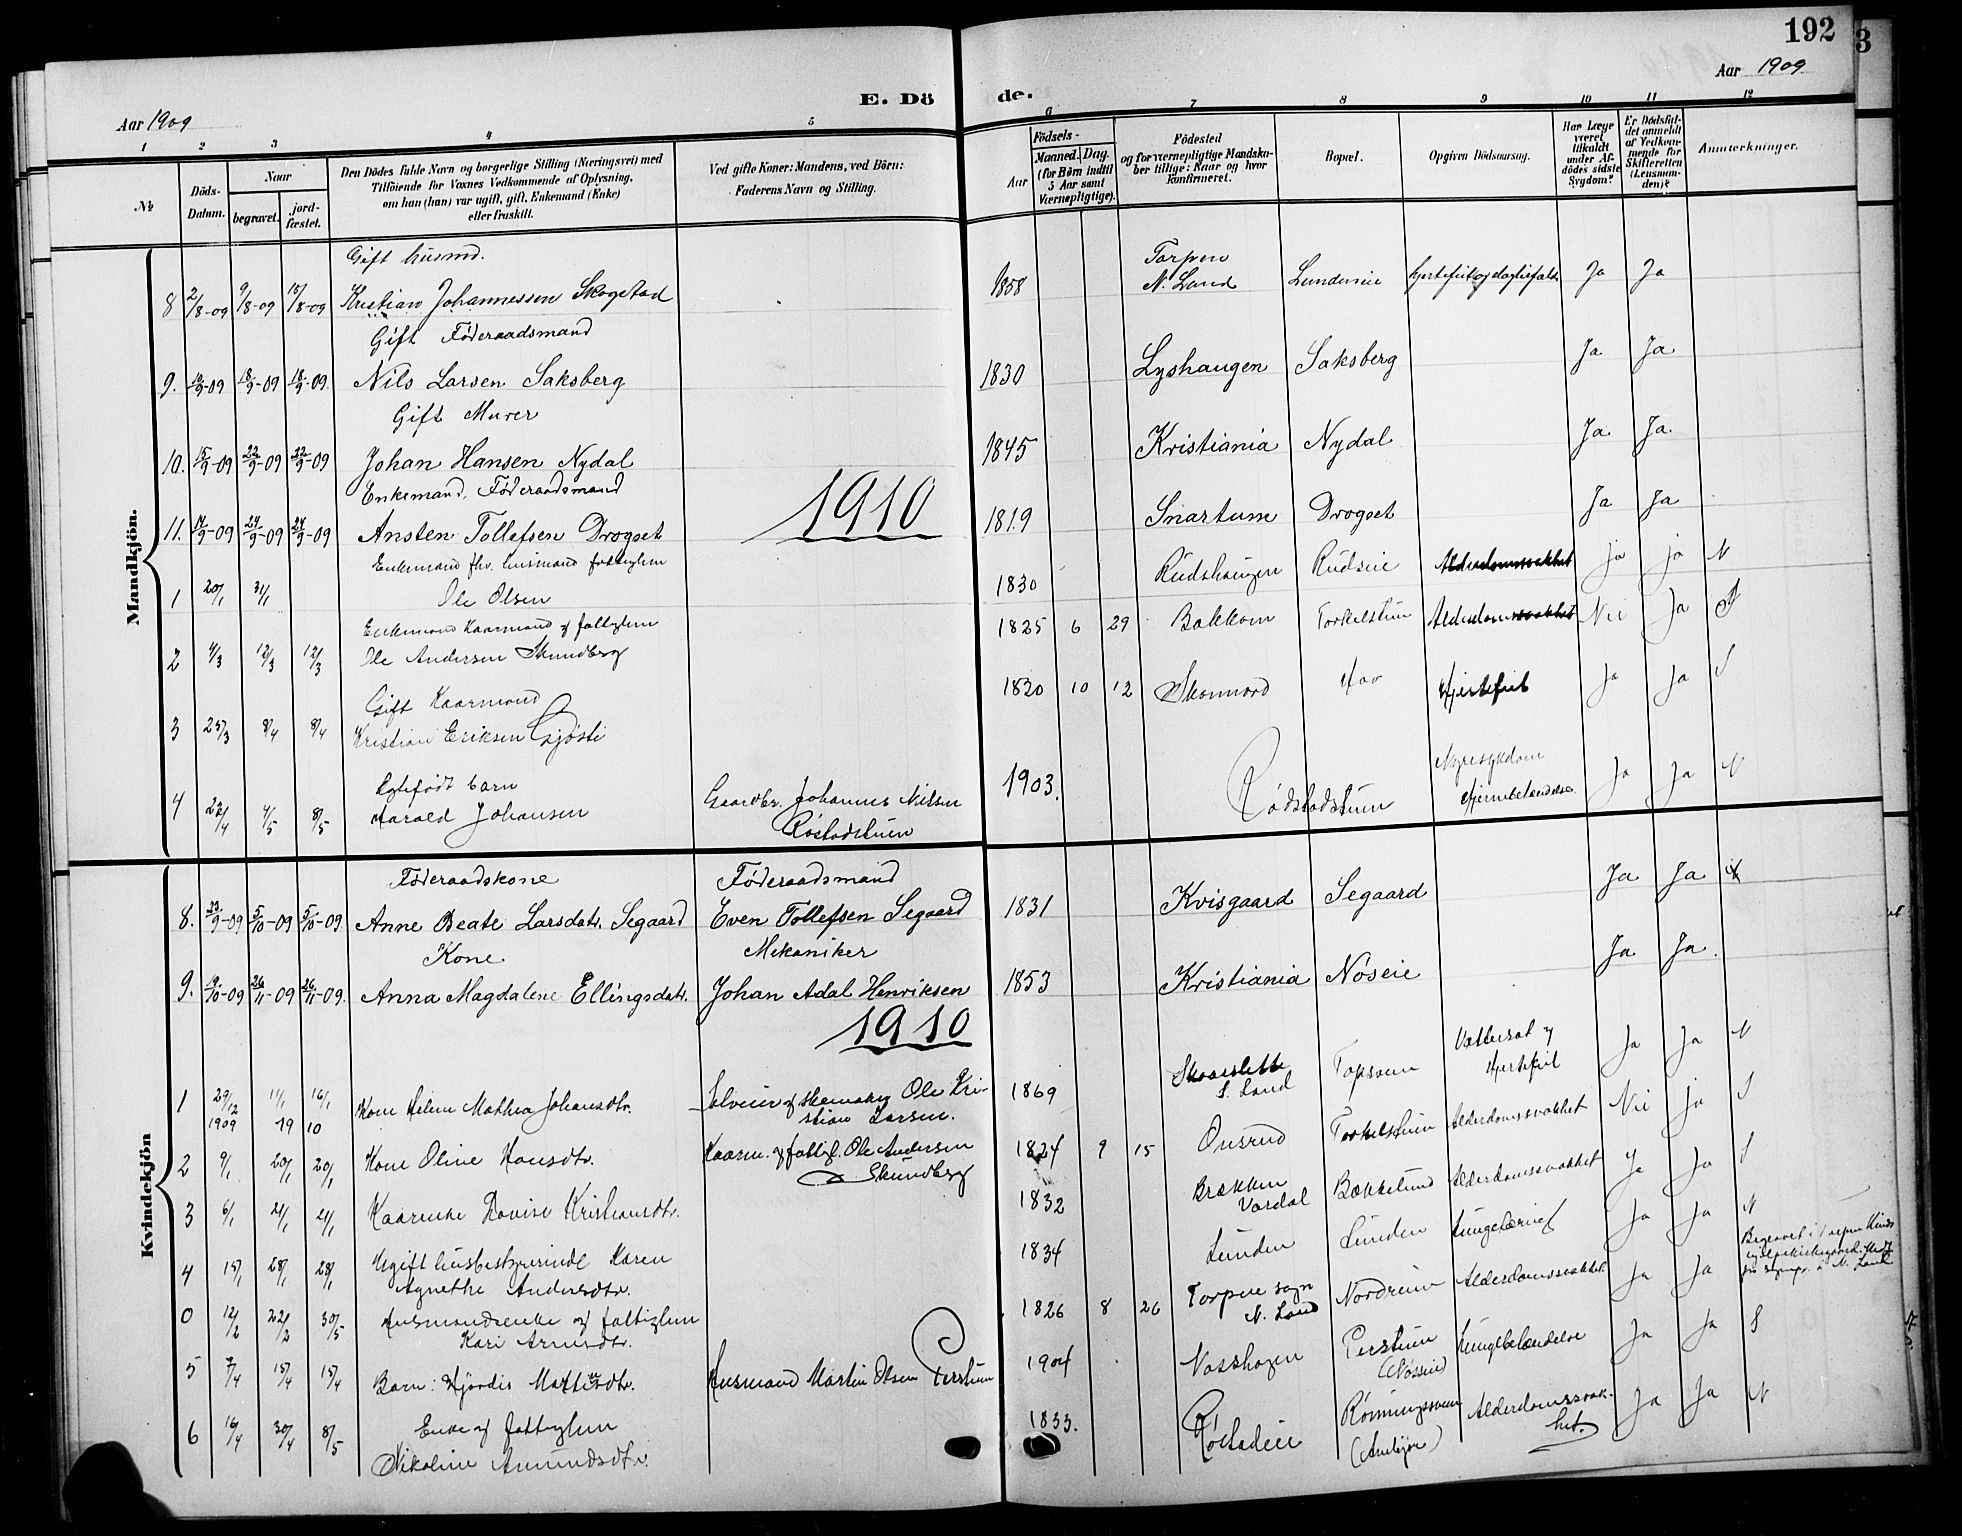 192
3
Aar 1909
E. Dö
de.
Aar 1909
1 2 3 4 5 6 7 8 9 10 11 12
№
Döds-
Datum.
Naar
begravet.
jord-
fæstet.
Den Dödes fulde Navn og borgerlige Stilling (Næringsvei) med
Tilföiende for Voxnes Vedkommende af Oplysning,
om han (hun) var ugift, gift, Enkemand (Enke)
eller fraskilt.
Ved gifte Koner: Mandens, ved Börn:
Faderens Navn og Stilling.
Födsels-
Aar
Maaned. Dag.
(for Börn indtil
5 Aar samt
Værnepligtige).
Födested
og for værnepligtige Mandska-
ber tillige: Naar og hvor
konfirmeret.
Bopæl.
Opgiven Dödsaarsag.
Har Læge
været
tilkaldt
under Af-
dödes sidste
Sygdom?
Er Dödsfal-
det anmeldt
af Vedkom-
mende for
Skifteretten
(Lensman-
den)?
Anmerkninger.
Mandkjön.
Gift husmd. Torpen
8 2/8-09 9/8-09 15/8-09 Kristian Johannessen Skogstad 1858 N. Land Lundeneie Ja Ja
Gift Føderaadsmand
9. 10/9-09 18/9-09 18/9-09. Nils Larsen Saksberg 1830 Lyshaugen Saksberg Ja Ja
Gift Murer
10. 15/9-09 22/9-09 22/9-09 Johan Hansen Nydal 1845 Kristiania Nydal Ja Ja
Enkemand, Føderaadsmand
1910
11. 17/9-09 24/9-09 24/9-09 Ansten Tollefsen Drogset 1819 Snartum Drogset Ja Ja
Enkemand fhv. husmand fattiglem
1 20/1 31/1 Ole Olsen 1830 Rudshaugen Rudseie Alderdomssvakhet ja ja N
Enkemand Kaarmand og fattiglem
2 4/3 12/3 12/3 Ole Andersen Skundberg 1825 6 29 Bakkom Torkelstuen Alderdomssvakhet Nei Ja
Gift Kaarmand
3 25/3 8/4 8/4 Kristian Eriksen Gjøsti 1820 10 12 Skonnord Hov Hjertefeil Ja Ja S
Egtefødt barn Gaardbr. Johannes Nilsen Nyresykdom
4 22/4 4/5 8/5 Harald Johansen Røstadstuen 1903. Rødstadstuen Hjernebetændelse Ja Ja N
Kvindekjön
Føderaadskone Føderaadsmand
8. 23/9-09 5/10-09 5/10-09. Anne Beate Larsdatr. Segaard Even Tollefsen Segaard 1831 Kvisgaard Segaard Ja Ja
Kone. Mekaniker
9. 19/10-09 26/11-09 26/11-09. Anna Magdalene Ellingsdatr. Johan Adal Henriksen 1853 Kristiania Nøseie Ja Ja.
1910
1 29/12 1909 11/1 19 16/1 10 Kone Helene Mathea Johansdtr. Selveier og skomaker Ole Kri-
stian Larsen. 1869 Skaarslette
S. Land Topsveen Vattersot og
Hjertefeil Ja Ja N
2 9/1 20/1 20/1 Kone Oline Hansdtr. Kaarm. og fattigl. Ole Andersen
Skundberg 1824 9 15 Onsrud Torkelstuen Alderdomssvakhet Nei ja S
3 6/1 21/1 21/1 Kaarenke Lovise Kristiansdtr. 1832 Brækken
Vardal Bækkelund Alderdomssvakhet Ja Ja S
4 15/1 28/1 28/1 Ugift husbestyrerinde Karen
Agnethe Andersdtr. 1834 Lunden Lunden Ja Ja N
0 12/2 22/2 30/5 Husmandsenke og fattiglem
Kari Arnesdtr. 1826 8 26 Torpen sogn
N. Land Nordreien Alderdomssvakhet. Ja Ja Begravet i Torpen
N. Land
5 7/4 15/4 15/4 Barn: Hjørdis Martinsdtr. Husmand Martin Olsen Perstuen 1904 Vosshagen Perstuen
(Nøseie) Lungebetændelse Ja Ja S
6 16/4 30/4 8/5 Enke og fattiglem
Nikoline Amundsdtr. 1833. Røstadeie Rønningsveen Alderdomssvak-
het. Ja Ja N